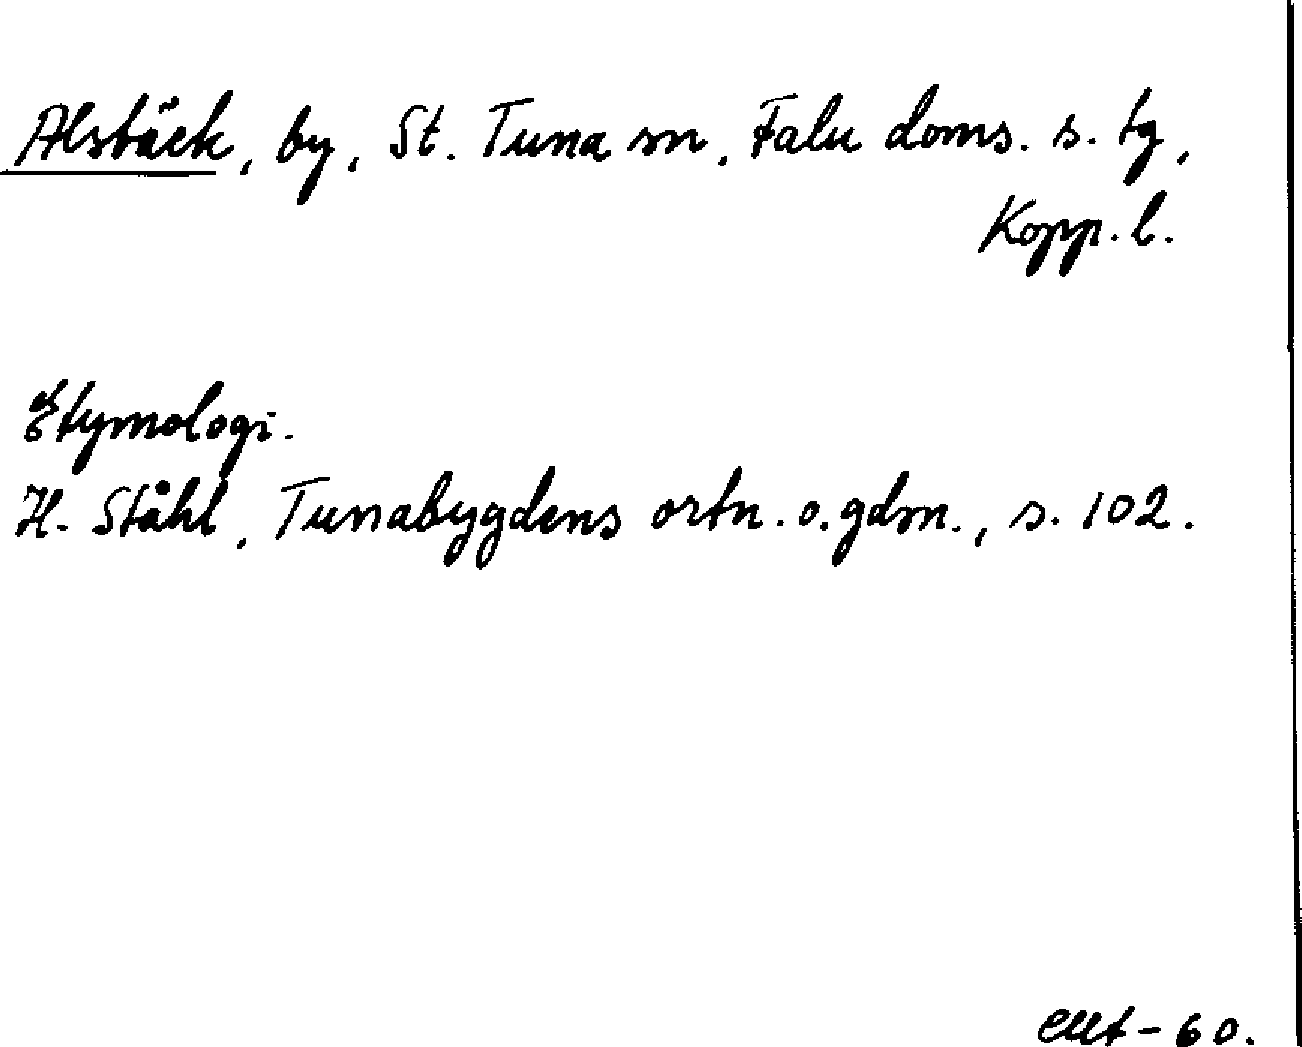 Alsbäck, by, St. Tuna sn, Falu doms. s. tg,
Kopp. l.
Etymologi.
H. Ståhl, Tunabygdens ortn. o. gdn., s. 102.
-60.